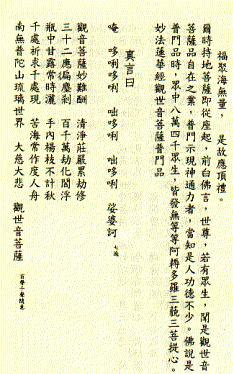 福聚海無量，是故應頂禮。
爾時持地菩薩即從座起，前白佛言。世尊，若有眾生，聞是觀世音
菩薩品自在之業，普門示現神通力者，當知是人功德不少。佛說是
普門品時，眾中八萬四千眾生，皆發無等等阿耨多羅三藐三菩提心。
妙法蓮華經觀世音菩薩普門品
真言曰
唵　哆唎哆唎　咄哆唎　咄哆唎　娑婆訶　七遍
觀音菩薩妙難酬　清淨莊嚴累劫修
三十二應徧塵剎　百千萬劫化閻浮
瓶中甘露常時灑　手內楊枝不計秋
千處祈求千處現　苦海常作度人舟
南無普陀山琉璃世界　大慈大悲　觀世音菩薩